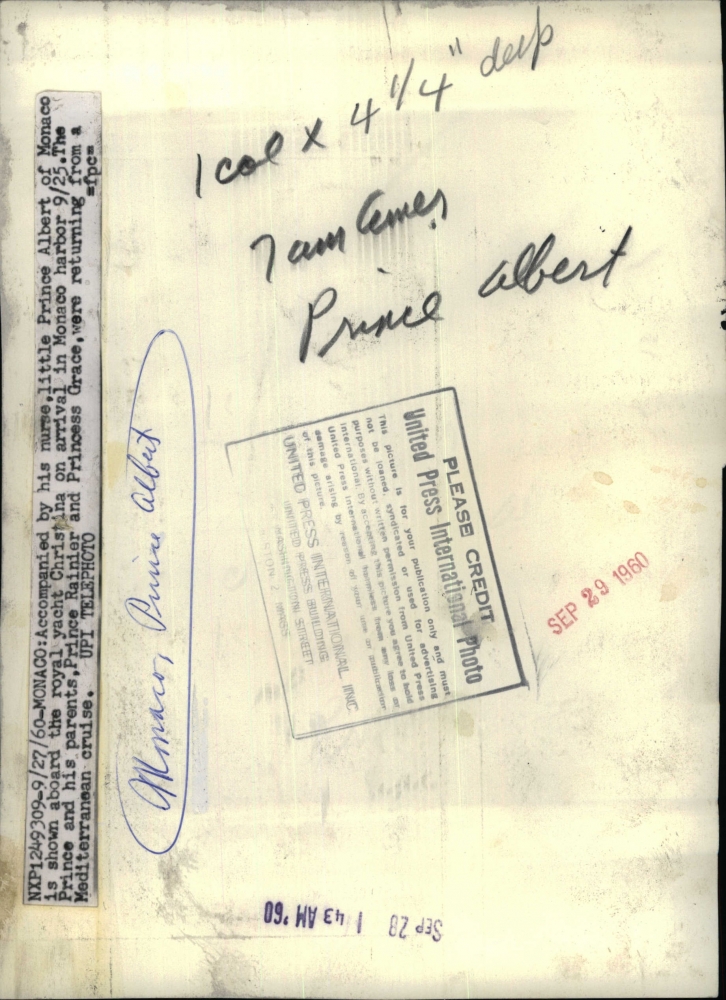 NXP1249309-9/27/60-MONACO:Accompanied by his nurse,little Prince Albert of Monaco
is shown aboard the royal yacht Christina on arrival in Monaco harbor 9/25.The
Prince and his parents,Prince Rainier and Princess Grace,were returning from a
Mediterranean cruise. UPI TELEPHOTO =fpc=
Monaco, Prince Albert
1 col x 4 1/4" deep
7 am
Prince Albert
PLEASE CREDIT
United Press International Photo
This picture is for your publication only and must
not be loaned, syndicated or used for advertising
purposes without written permission from United Press
International. By accepting this picture you agree to hold
United Press International harmless from any loss or
damage arising by reason of your use or publication
of this picture.
UNITED PRESS INTERNATIONAL, INC.
UNITED PRESS BUILDING
WASHINGTON STREET
BOSTON 7 MASS
SEP 29 1960
SEP 28 1 43 AM '60